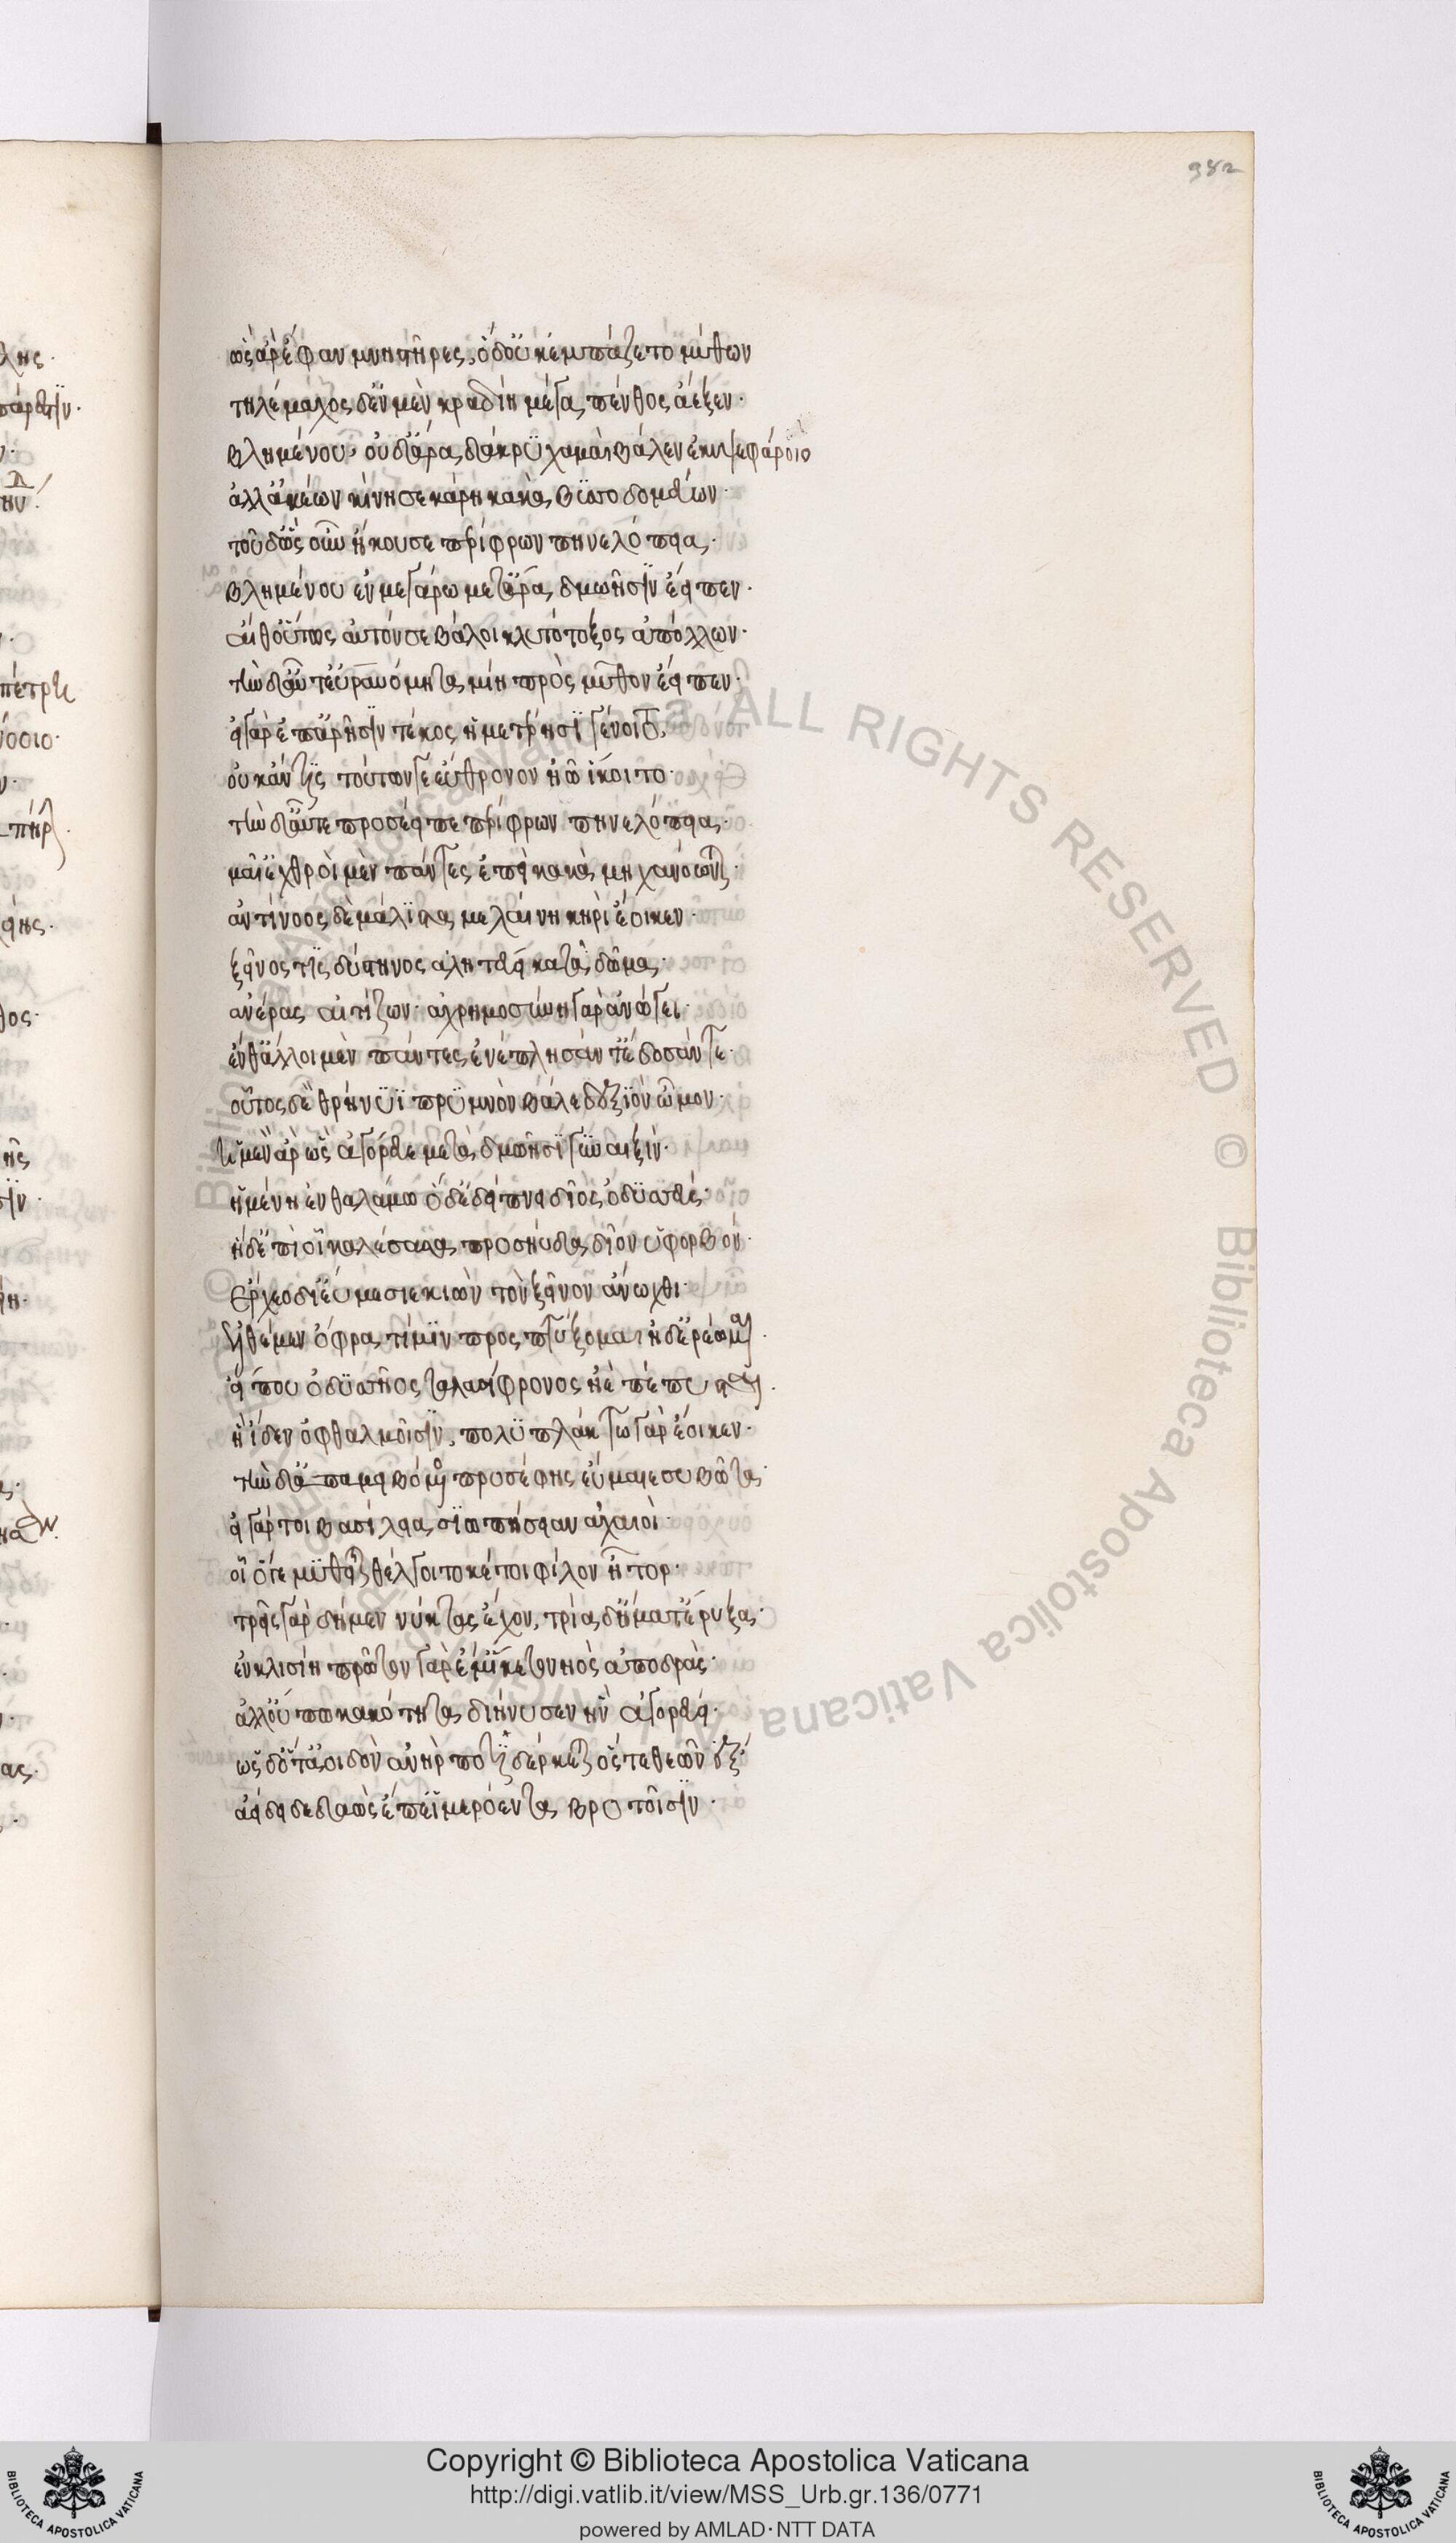 382
ὣς ἄρ' ἔφαν μνηστῆρες, ὁ δ' οὐκ ἐμπάζετο μύθων
τηλέμαχος δ' ἐν μὲν κραδίη μέγα πένθος ἄεξεν·
βλημένου· οὐδ' ἄρα δάκρυ χαμαὶ βάλεν ἐκ βλεφάροιϊν
ἀλλ' ἀκέων κίνησε κάρη κακὰ βυσσοδομεύων·
τοῦ δ' ὡς οὖν ἤκουσε περίφρων πηνελόπεια·
βλημένου ἐν μεγάρω μετ' ἄρα δμωῆσιν ἔειπεν·
αἴθ' οὕτως αὐτόν σε βάλοι κλυτότοξος ἀπόλλων·
τὴν δ' αὖτ' εὐρυνόμη ταμίη πρὸς μῦθον ἔειπεν·
εἰ γὰρ ἐπ' ἀρῆσιν τέκος ἡμετέρησι γένοιτο,
οὐκ ἄν τις τούτων γε ἐύθρονον ἠῶ ἵκοιτο·
τὴν δ' αὖτε προσέειπε περίφρων πηνελόπεια·
μαῖ' ἐχθροὶ μὲν πάντες ἐπεὶ κακὰ μηχανόωνται·
ἀντίνοος δὲ μάλιστα μελαίνη κηρὶ ἔοικεν·
ξεῖνός τις δύστηνος ἀλητεύει κατὰ δῶμα·
ἀνέρας αἰτίζων· ἀχρημοσύνη γὰρ ἀνώγει·
ἔνθ' ἄλλοι μὲν πάντες ἐνέπλησάν τ' ἔδοσάν τε·
οὗτος δὲ θρήνυι πρυμνὸν βάλε δεξιὸν ὦμον·
ἡ μὲν ἄρ' ὣς ἀγόρευε μετὰ δμωῆσι γυναιξίν·
ἡμένη ἐν θαλάμω ὁ δ' ἐδείπνει δῖος ὀδυσσεύς·
ἡ δ' ἐπὶ οἷ καλέσασα προσηύδα δῖον ὑφορβόν·
ἔρχεο δῖ' εὔμαιε κιὼν τὸν ξεῖνον ἄνωχθι·
ἐλθέμεν ὄφρα τί μιν προσπτύξομαι ἠδ' ἐρέωμαι·
εἴ που ὀδυσσῆος ταλασίφρονος ἠὲ πέπυσται·
ἢ ἴδεν ὀφθαλμοῖσιν, πολυπλάκτω γὰρ ἔοικεν·
τὴν δ' ἀπαμειβόμενος προσέφης εὔμαιε συβῶτα·
εἰ γάρ τοι βασίλεια σιωπήσειαν ἀχαιοὶ·
οἷ' ὅ γε μυθεῖται θέλγοιτό κέ τοι φίλον ἦτορ·
τρεῖς γὰρ δή μιν νύκτας ἔχον, τρία δ' ἤματ' ἔρυξα·
ἐν κλισίη πρῶτον γὰρ ἔμ' ἵκετο νηὸς ἀποδράς·
ἀλλ' οὔπω κακότητα διήνυσεν ἣν ἀγορεύει·
ὡς δ' ὅτ' ἀοιδὸν ἀνὴρ ποτιδέρκεται ὅς τε θεῶν ἐξ·
ἀείδει δεδαὼς ἔπε' ἱμερόεντα βροτοῖσιν·
Copyright © Biblioteca Apostolica Vaticana
http://digi.vatlib.it/view/MSS_Urb.gr.136/0771
powered by AMLAD·NTT DATA